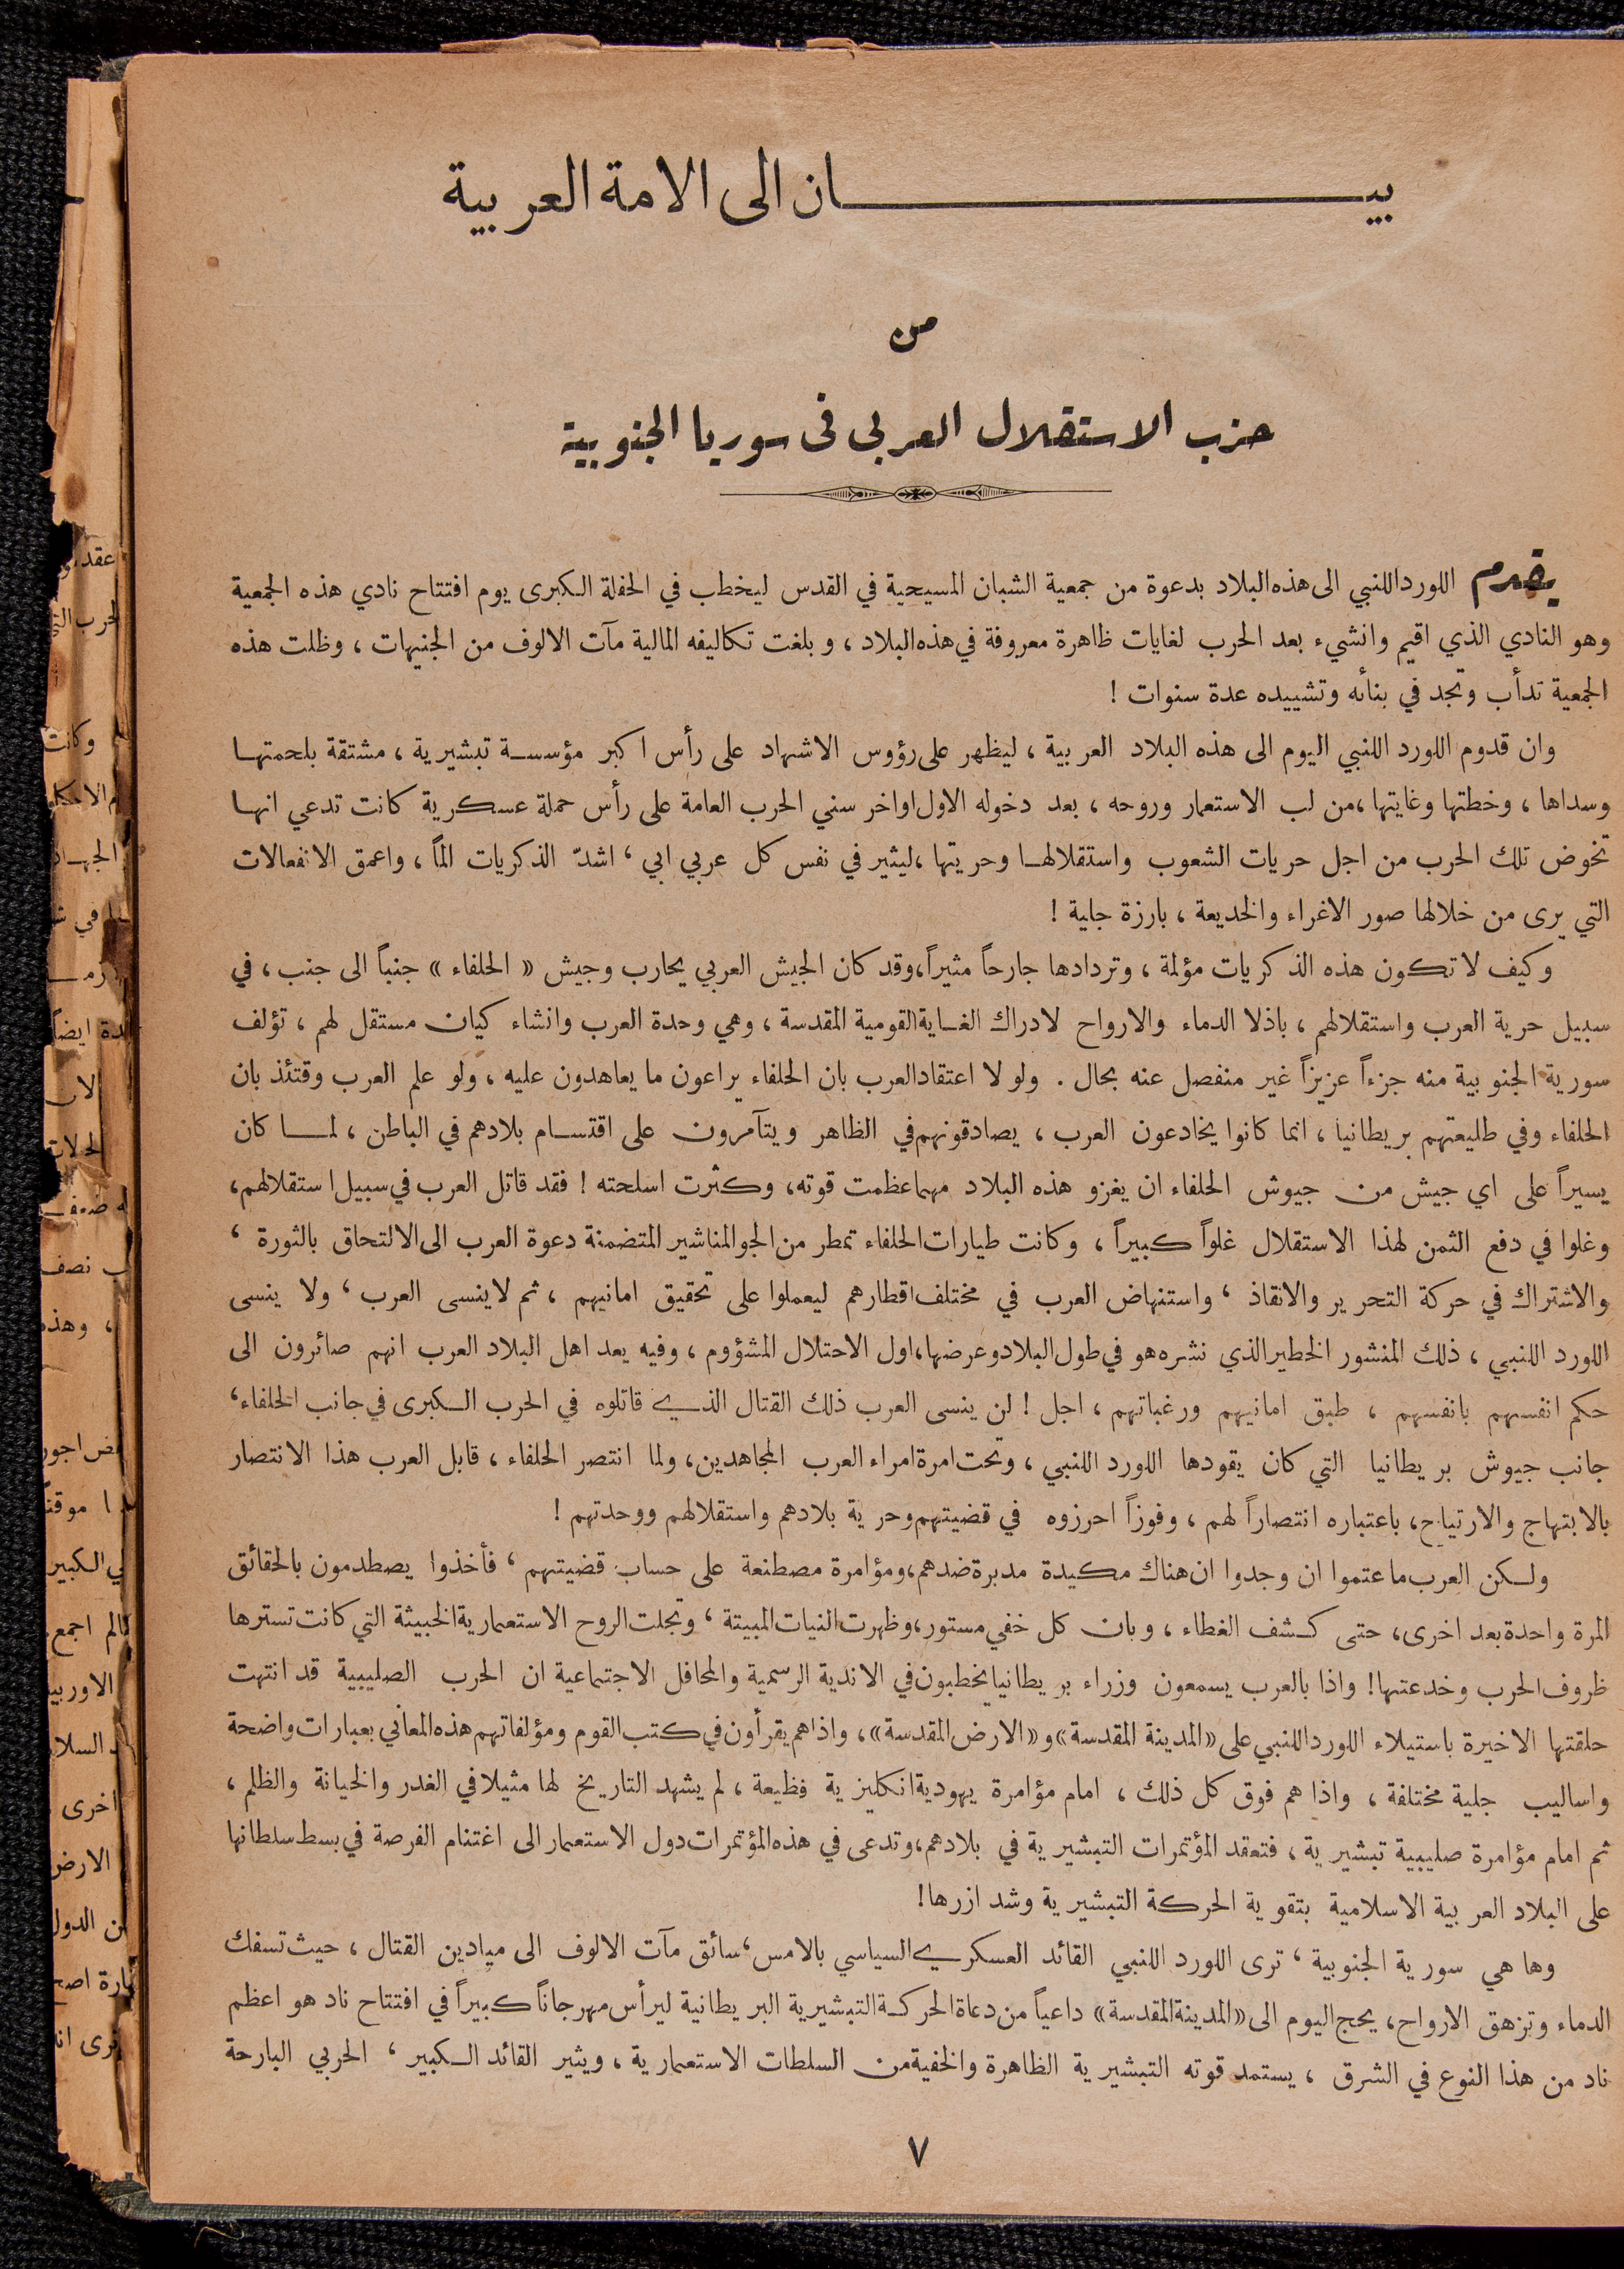 بيـــــــــان الى الامة العربية
من
حزب الاستقلال العربى فى سوريا الجنوبية
يقدم اللورد اللنبي الى هذه البلاد بدعوة من جمعية الشبان المسيحية في القدس ليخطب في الحفلة الكبرى يوم افتتاح نادي هذه الجمعية
وهو النادي الذي اقيم وانشيء بعد الحرب لغايات ظاهرة معروفة في هذه البلاد ، وبلغت تكاليفه المالية مآت الالوف من الجنيهات ، وظلت هذه
الجمعية تدأب وتجد في بنائه وتشييده عدة سنوات !
وان قدوم اللورد اللنبي اليوم الى هذه البلاد العربية ، ليظهر على رؤوس الاشهاد على رأس اكبر مؤسسة تبشيرية ، مشتقة بلحمتها
وسداها ، وخطتها وغايتها ، من لب الاستعمار وروحه ، بعد دخوله الاول اواخر سني الحرب العامة على رأس حملة عسكرية كانت تدعي انها
تخوض تلك الحرب من اجل حريات الشعوب واستقلالها وحريتها ، ليثير في نفس كل عربي ابي ، اشدّ الذكريات الماً ، واعمق الانفعالات
التي يرى من خلالها صور الاغراء والخديعة ، بارزة جلية !
وكيف لا تكون هذه الذكريات مؤلمة ، وتردادها جارحاً مثيراً ، وقد كان الجيش العربي يحارب وجيش « الحلفاء » جنباً الى جنب ، في
سبيل حرية العرب واستقلالهم ، باذلا الدماء والارواح لادراك الغاية القومية المقدسة ، وهي وحدة العرب وانشاء كيان مستقل لهم ، تؤلف
سورية الجنوبية منه جزءاً عزيزاً غير منفصل عنه بحال . ولو لا اعتقاد العرب بان الحلفاء يراعون ما يعاهدون عليه ، ولو علم العرب وقتئذ بان
الحلفاء وفي طليعتهم بريطانيا ، انما كانوا يخادعون العرب ، يصادقونهم في الظاهر ويتآمرون على اقتسام بلادهم في الباطن ، لما كان
يسيراً على اي جيش من جيوش الحلفاء ان يغزو هذه البلاد مهما عظمت قوته ، وكثرت اسلحته ! فقد قاتل العرب في سبيل استقلالهم ،
وغلوا في دفع الثمن لهذا الاستقلال غلواً كبيراً ، وكانت طيارات الحلفاء تمطر من الجو المناشير المتضمنة دعوة العرب الى الالتحاق بالثورة ،
والاشتراك في حركة التحرير والانقاذ ، واستنهاض العرب في مختلف اقطارهم ليعملوا على تحقيق امانيهم ، ثم لا ينسى العرب ، ولا ينسى
اللورد اللنبي ، ذلك المنشور الخطير الذي نشره هو في طول البلاد وعرضها ، اول الاحتلال المشؤوم ، وفيه يعد اهل البلاد العرب انهم صائرون الى
حكم انفسهم بانفسهم ، طبق امانيهم ورغباتهم ، اجل ! لن ينسى العرب ذلك القتال الذي قاتلوه في الحرب الكبرى في جانب الحلفاء ،
جانب جيوش بريطانيا التي كان يقودها اللورد اللنبي ، وتحت امرة امراء العرب المجاهدين ، ولما انتصر الحلفاء ، قابل العرب هذا الانتصار
بالابتهاج والارتياح ، باعتباره انتصاراً لهم ، وفوزاً احرزوه في قضيتهم وحرية بلادهم واستقلالهم ووحدتهم !
ولكن العرب ما عتموا ان وجدوا ان هناك مكيدة مدبرة ضدهم ، ومؤامرة مصطنعة على حساب قضيتهم ، فأخذوا يصطدمون بالحقائق
المرة واحدة بعد اخرى ، حتى كشف الغطاء ، وبان كل خفي مستور ، وظهرت النيات المبيتة ، وتجلت الروح الاستعمارية الخبيثة التي كانت تسترها
ظروف الحرب وخدعتها ! واذا بالعرب يسمعون وزراء بريطانيا يخطبون في الاندية الرسمية والمحافل الاجتماعية ان الحرب الصليبية قد انتهت
حلقتها الاخيرة باستيلاء اللورد اللنبي على « المدينة المقدسة » و « الارض المقدسة » ، واذا هم يقرأون في كتب القوم ومؤلفاتهم هذه المعاني بعبارات واضحة
واساليب جلية مختلفة ، واذا هم فوق كل ذلك ، امام مؤامرة يهودية انكليزية فظيعة ، لم يشهد التاريخ لها مثيلا في الغدر والخيانة والظلم ،
ثم امام مؤامرة صليبية تبشيرية ، فتعقد المؤتمرات التبشيرية في بلادهم ، وتدعى في هذه المؤتمرات دول الاستعمار الى اغتنام الفرصة في بسط سلطانها
على البلاد العربية الاسلامية بتقوية الحركة التبشيرية وشد ازرها !
وها هي سورية الجنوبية ، ترى اللورد اللنبي القائد العسكري السياسي بالامس ، سائق مآت الالوف الى ميادين القتال ، حيث تسفك
الدماء وتزهق الارواح ، يحج اليوم الى « المدينة المقدسة » داعياً من دعاة الحركة التبشيرية البريطانية ليرأس مهرجاناً كبيراً في افتتاح ناد هو اعظم
ناد من هذا النوع في الشرق ، يستمد قوته التبشيرية الظاهرة والخفية من السلطات الاستعمارية ، ويثير القائد الكبير ، الحربي البارحة
٧